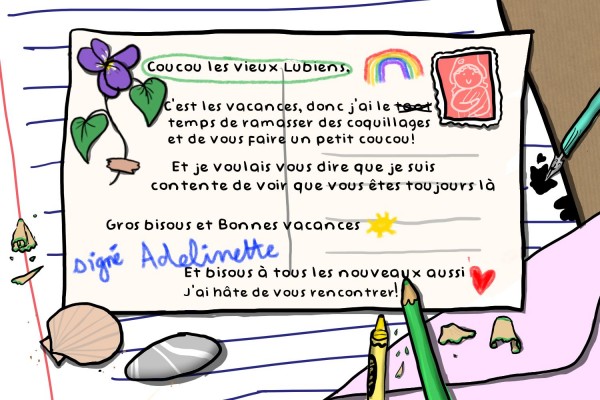 Coucou les vieux Lubiens,
C'est les vacances, donc j'ai le tout
temps de ramasser des coquillages
et de vous faire un petit coucou!
Et je voulais vous dire que je suis
contente de voir que vous êtes toujours là
Gros bisous et Bonnes vacances
signé Adelinette
Et bisous à tous les nouveaux aussi
J'ai hâte de vous rencontrer!